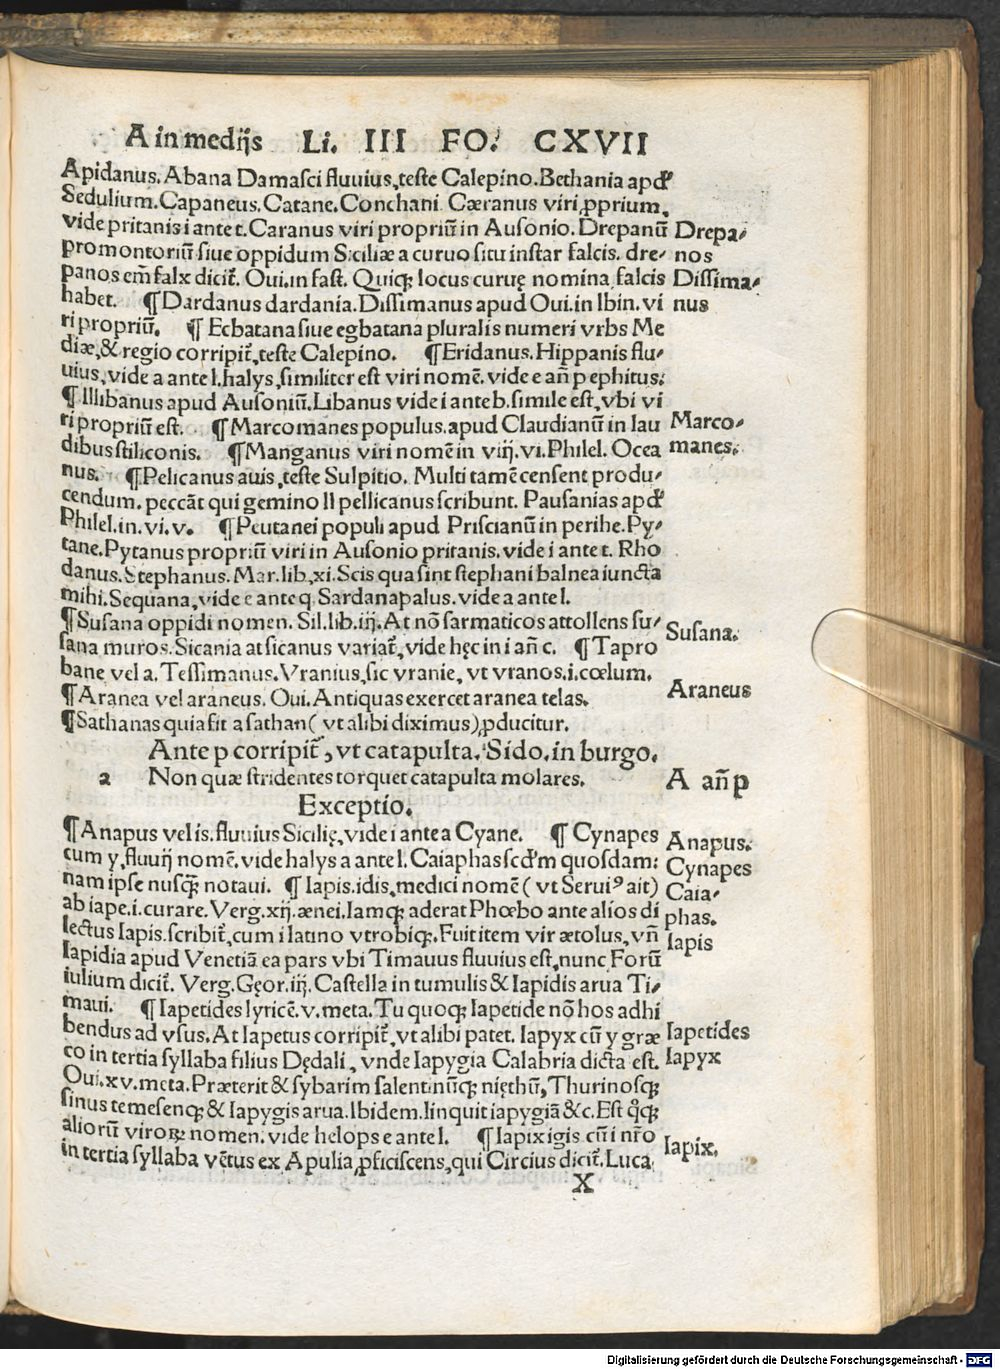 A in medijs Li. III FO. CXVII
Apidanus. Abana Damasci fluuius, teste Calepino. Bethania apđ
Sedulium. Capaneus. Catane. Conchani. Cæranus viri ꝓprium,
vide pritanis i ante t. Caranus viri propriũ in Ausonio. Drepanũ
promontoriũ siue oppidum Siciliæ a curuo situ instar falcis. dre-
panos em̃ falx dicit̃. Oui. in fast. Quiqꝫ locus curuę nomina falcis
habet. ¶ Dardanus dardania. Dissimanus apud Oui. in Ibin. vi
ri propriũ. ¶ Ecbatana siue egbatana pluralis numeri vrbs Me
diæ, & regio corripit̃, teste Calepino. ¶ Eridanus. Hippanis flu-
uius, vide a ante l. halys, similiter est viri nomẽ. vide e añ p ephitus.
¶ Illibanus apud Ausoniũ. Libanus vide i ante b. simile est, vbi vi
ri propriũ est. ¶ Marcomanes populus. apud Claudianũ in lau
dibus stiliconis. ¶ Manganus viri nomẽ in viij. vi. Philel. Ocea
nus. ¶ Pelicanus auis, teste Sulpitio. Multi tamẽ censent produ-
cendum. peccãt qui gemino ll pellicanus scribunt. Pausanias apđ
Philel. in. vi. v. ¶ Peutanei populi apud Priscianũ in perihe. Py-
tane. Pytanus propriũ viri in Ausonio pritanis. vide i ante t. Rho
danus. Stephanus. Mar. lib. xi. Scis qua sint stephani balnea iuncta
mihi. Sequana, vide e ante q. Sardanapalus. vide a ante l.
¶ Susana oppidi nomen. Sil. lib. iij. At nõ sarmaticos attollens su-
sana muros. Sicania at sicanus variat̃, vide hęc in i añ c. ¶ Tapro
bane vel a. Tessimanus. Vranius, sic vranie, vt vranos. i. cœlum.
¶ Aranea vel araneus. Oui. Antiquas exercet aranea telas.
¶ Sathanas quia fit a sathan ( vt alibi diximus), ꝓducitur.
Ante p corripit̃, vt catapulta. Sido. in burgo.
2 Non quæ stridentes torquet catapulta molares.
Exceptio.
¶ Anapus vel is. fluuius Sicilię, vide i ante a Cyane. ¶ Cynapes
cum y, fluuij nomẽ, vide halys a ante l. Caiaphas scđm quosdam:
nam ipse nusqꝫ notaui. ¶ Iapis. idis, medici nomẽ ( vt Seruiꝰ ait)
ab iape. i. curare. Verg. xij. ænei. Iamqꝫ aderat Phœbo ante alios di
lectus Iapis. scribit̃, cum i latino vtrobiqꝫ. Fuit item vir ætolus, vñ
Iapidia apud Venetiã ea pars vbi Timauus fluuius est, nunc Forũ
iulium dicit̃. Verg. Gęor. iij. Castella in tumulis & Iapidis arua Ti-
maui. ¶ Iapetides lyricẽ. v. meta. Tu quoqꝫ Iapetide nõ hos adhi
bendus ad vsus. At Iapetus corripit̃, vt alibi patet. Iapyx cũ y græ
co in tertia syllaba filius Dędali, vnde Iapygia Calabria dicta est.
Oui. xv. meta. Præterit & sybarim salentinũqꝫ nięthũ, Thurinosqꝫ
sinus temesenqꝫ & Iapygis arua. Ibidem. linquit iapygiã &c. Est qꝙꝫ
aliorũ viroꝝ nomen. vide helops e ante l. ¶ Iapix igis cũ i nr̃o
in tertia syllaba vẽtus ex Apulia ꝓficiscens, qui Circius dicit̃. Luca
X
Drepa-
nos
Dissima-
nus
Marco-
manes.
Susana.
Araneus
A añ p
Anapus.
Cynapes
Caia-
phas.
Iapis
Iapetides
Iapyx
Iapix.
Digitalisierung gefördert durch die Deutsche Forschungsgemeinschaft - DFG